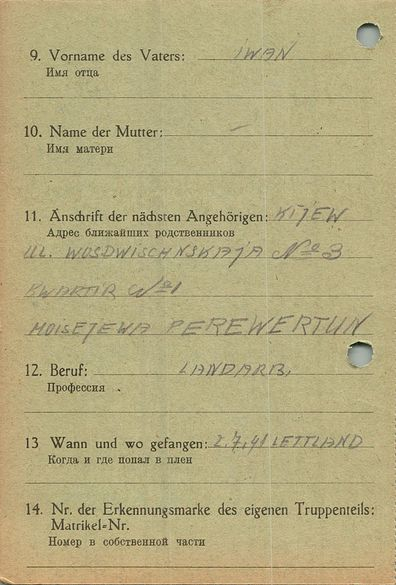 9. Vorname des Vaters: IWAN
Имя отца
10. Name der Mutter: –
Имя матери
11. Anschrift der nächsten Angehörigen: KIJEW
Адрес ближайших родственников
UL. WOSDWISCHNSKAJA No 3
KWARTIR No 1
MOISEJEWA PEREWERTUN
12. Beruf: LANDARB.
Профессия
13 Wann und wo gefangen: 2.7.41 LETTLAND
Когда и где попал в плен
14. Nr. der Erkennungsmarke des eigenen Truppenteils:
Matrikel-Nr.
Номер в собственной части